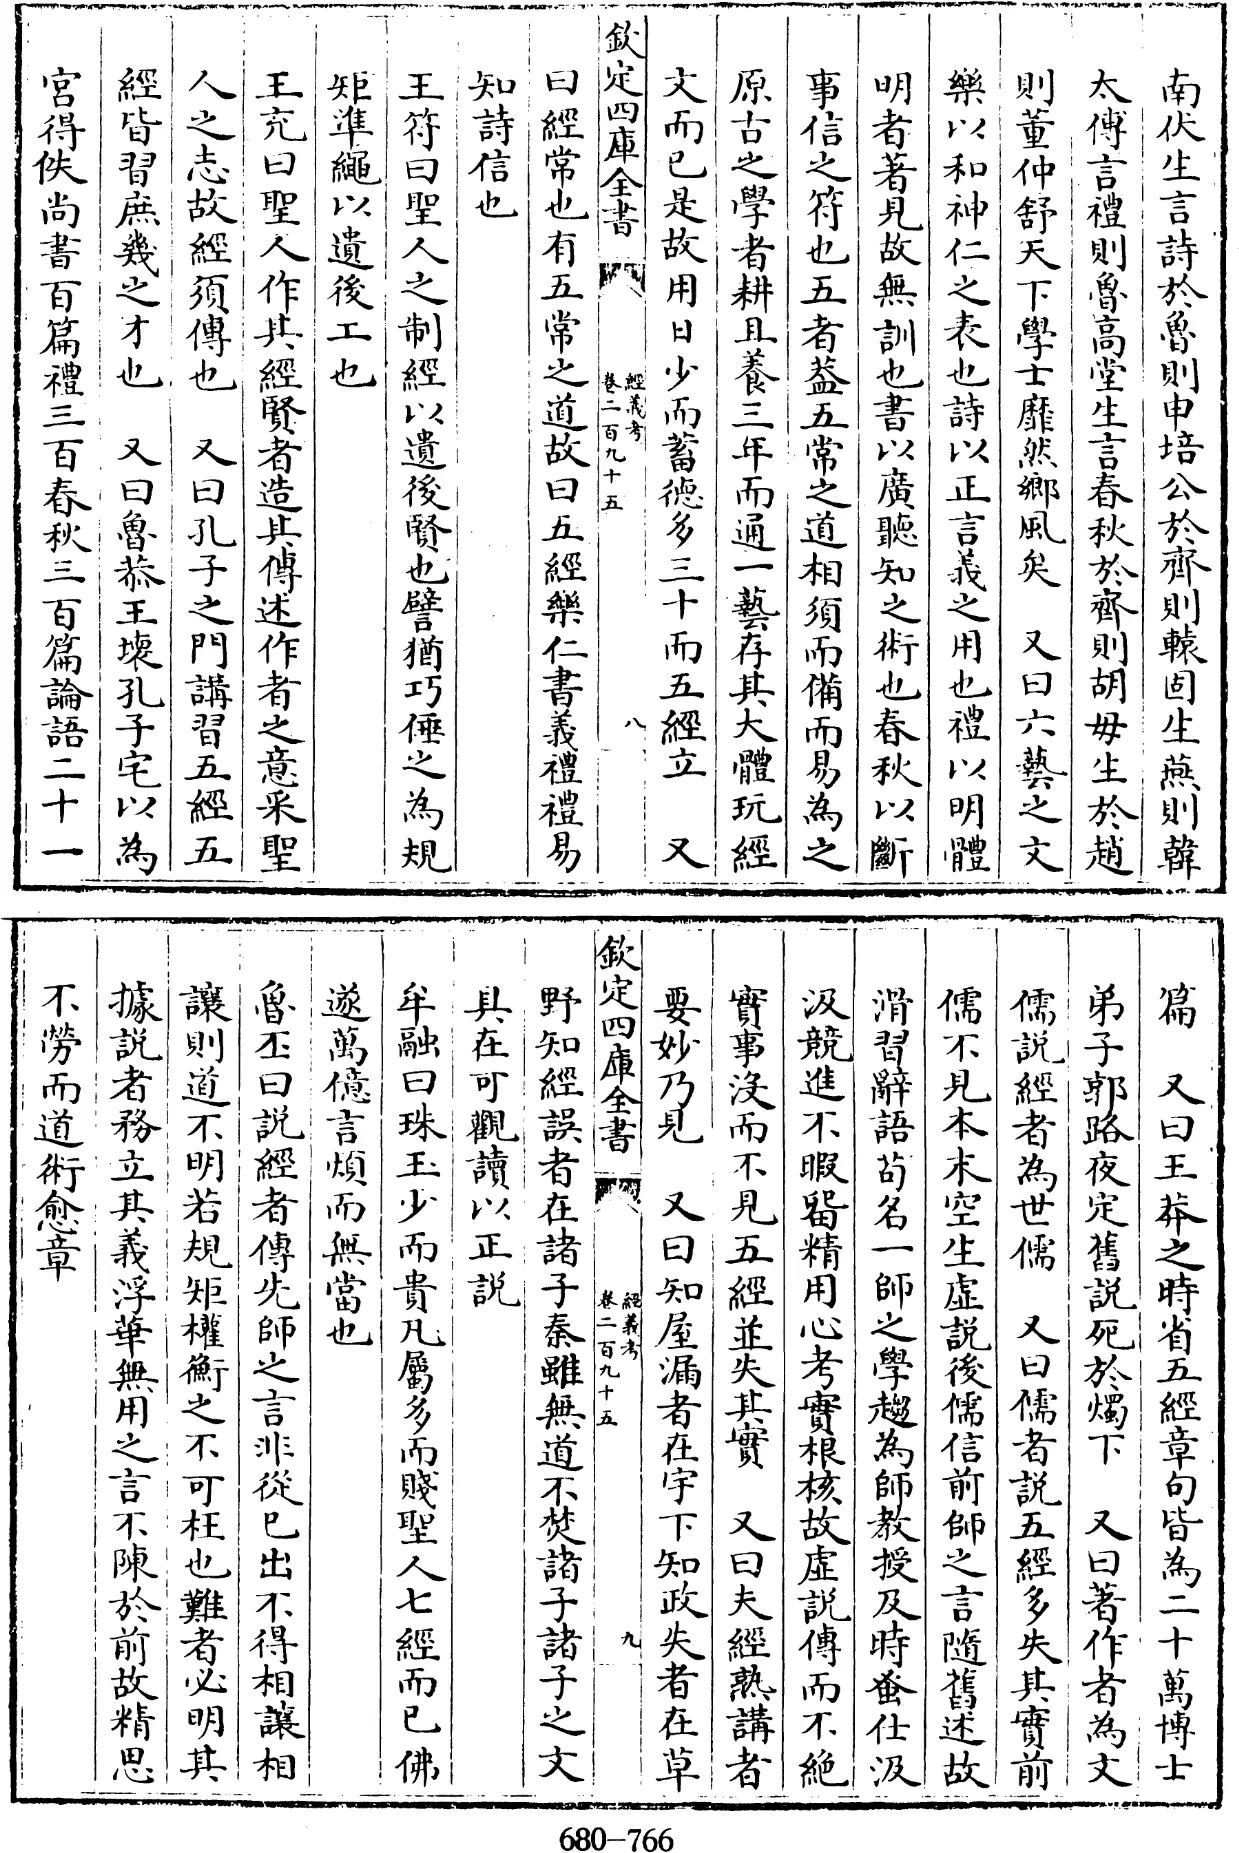 南伏生言詩於魯則申培公於齊則轅固生燕則韓
太傅言禮則魯高堂生言春秋於齊則胡毋生於趙
則董仲舒天下學士靡然鄉風矣　又曰六藝之文
樂以和神仁之表也詩以正言義之用也禮以明體
明者著見故無訓也書以廣聽知之術也春秋以斷
事信之符也五者葢五常之道相須而備而易為之
原古之學者耕且養三年而通一藝存其大體玩經
文而已是故用日少而蓄德多三十而五經立　又
欽定四庫全書
經義考
卷二百九十五
八
曰經常也有五常之道故曰五經樂仁書義禮禮易
知詩信也
王符曰聖人之制經以遺後賢也譬猶巧倕之為規
矩準繩以遺後工也
王充曰聖人作其經賢者造其傳述作者之意采聖
人之志故經須傳也　又曰孔子之門講習五經五
經皆習庶幾之才也　又曰魯恭王壞孔子宅以為
宮得佚尚書百篇禮三百春秋三百篇論語二十一
篇　又曰王莽之時省五經章句皆為二十萬博士
弟子郭路夜定舊説死於燭下　又曰著作者為文
儒説經者為世儒　又曰儒者説五經多失其實前
儒不見本末空生虛説後儒信前師之言隨舊述故
滑習辭語茍名一師之學趨為師教授及時蚤仕汲
汲競進不暇留精用心考實根核故虛説傳而不絶
實事沒而不見五經並失其實　又曰夫經熟講者
要妙乃見　又曰知屋漏者在宇下知政失者在草
欽定四庫全書
經義考
卷二百九十五
九
野知經誤者在諸子秦雖無道不焚諸子諸子之文
具在可觀讀以正説
牟融曰珠玉少而貴瓦屬多而賤聖人七經而已佛
遂萬億言煩而無當也
魯丕曰説經者傳先師之言非從已出不得相讓相
讓則道不明若規矩權衡之不可枉也難者必明其
據説者務立其義浮華無用之言不陳於前故精思
不勞而道術愈章
680-766